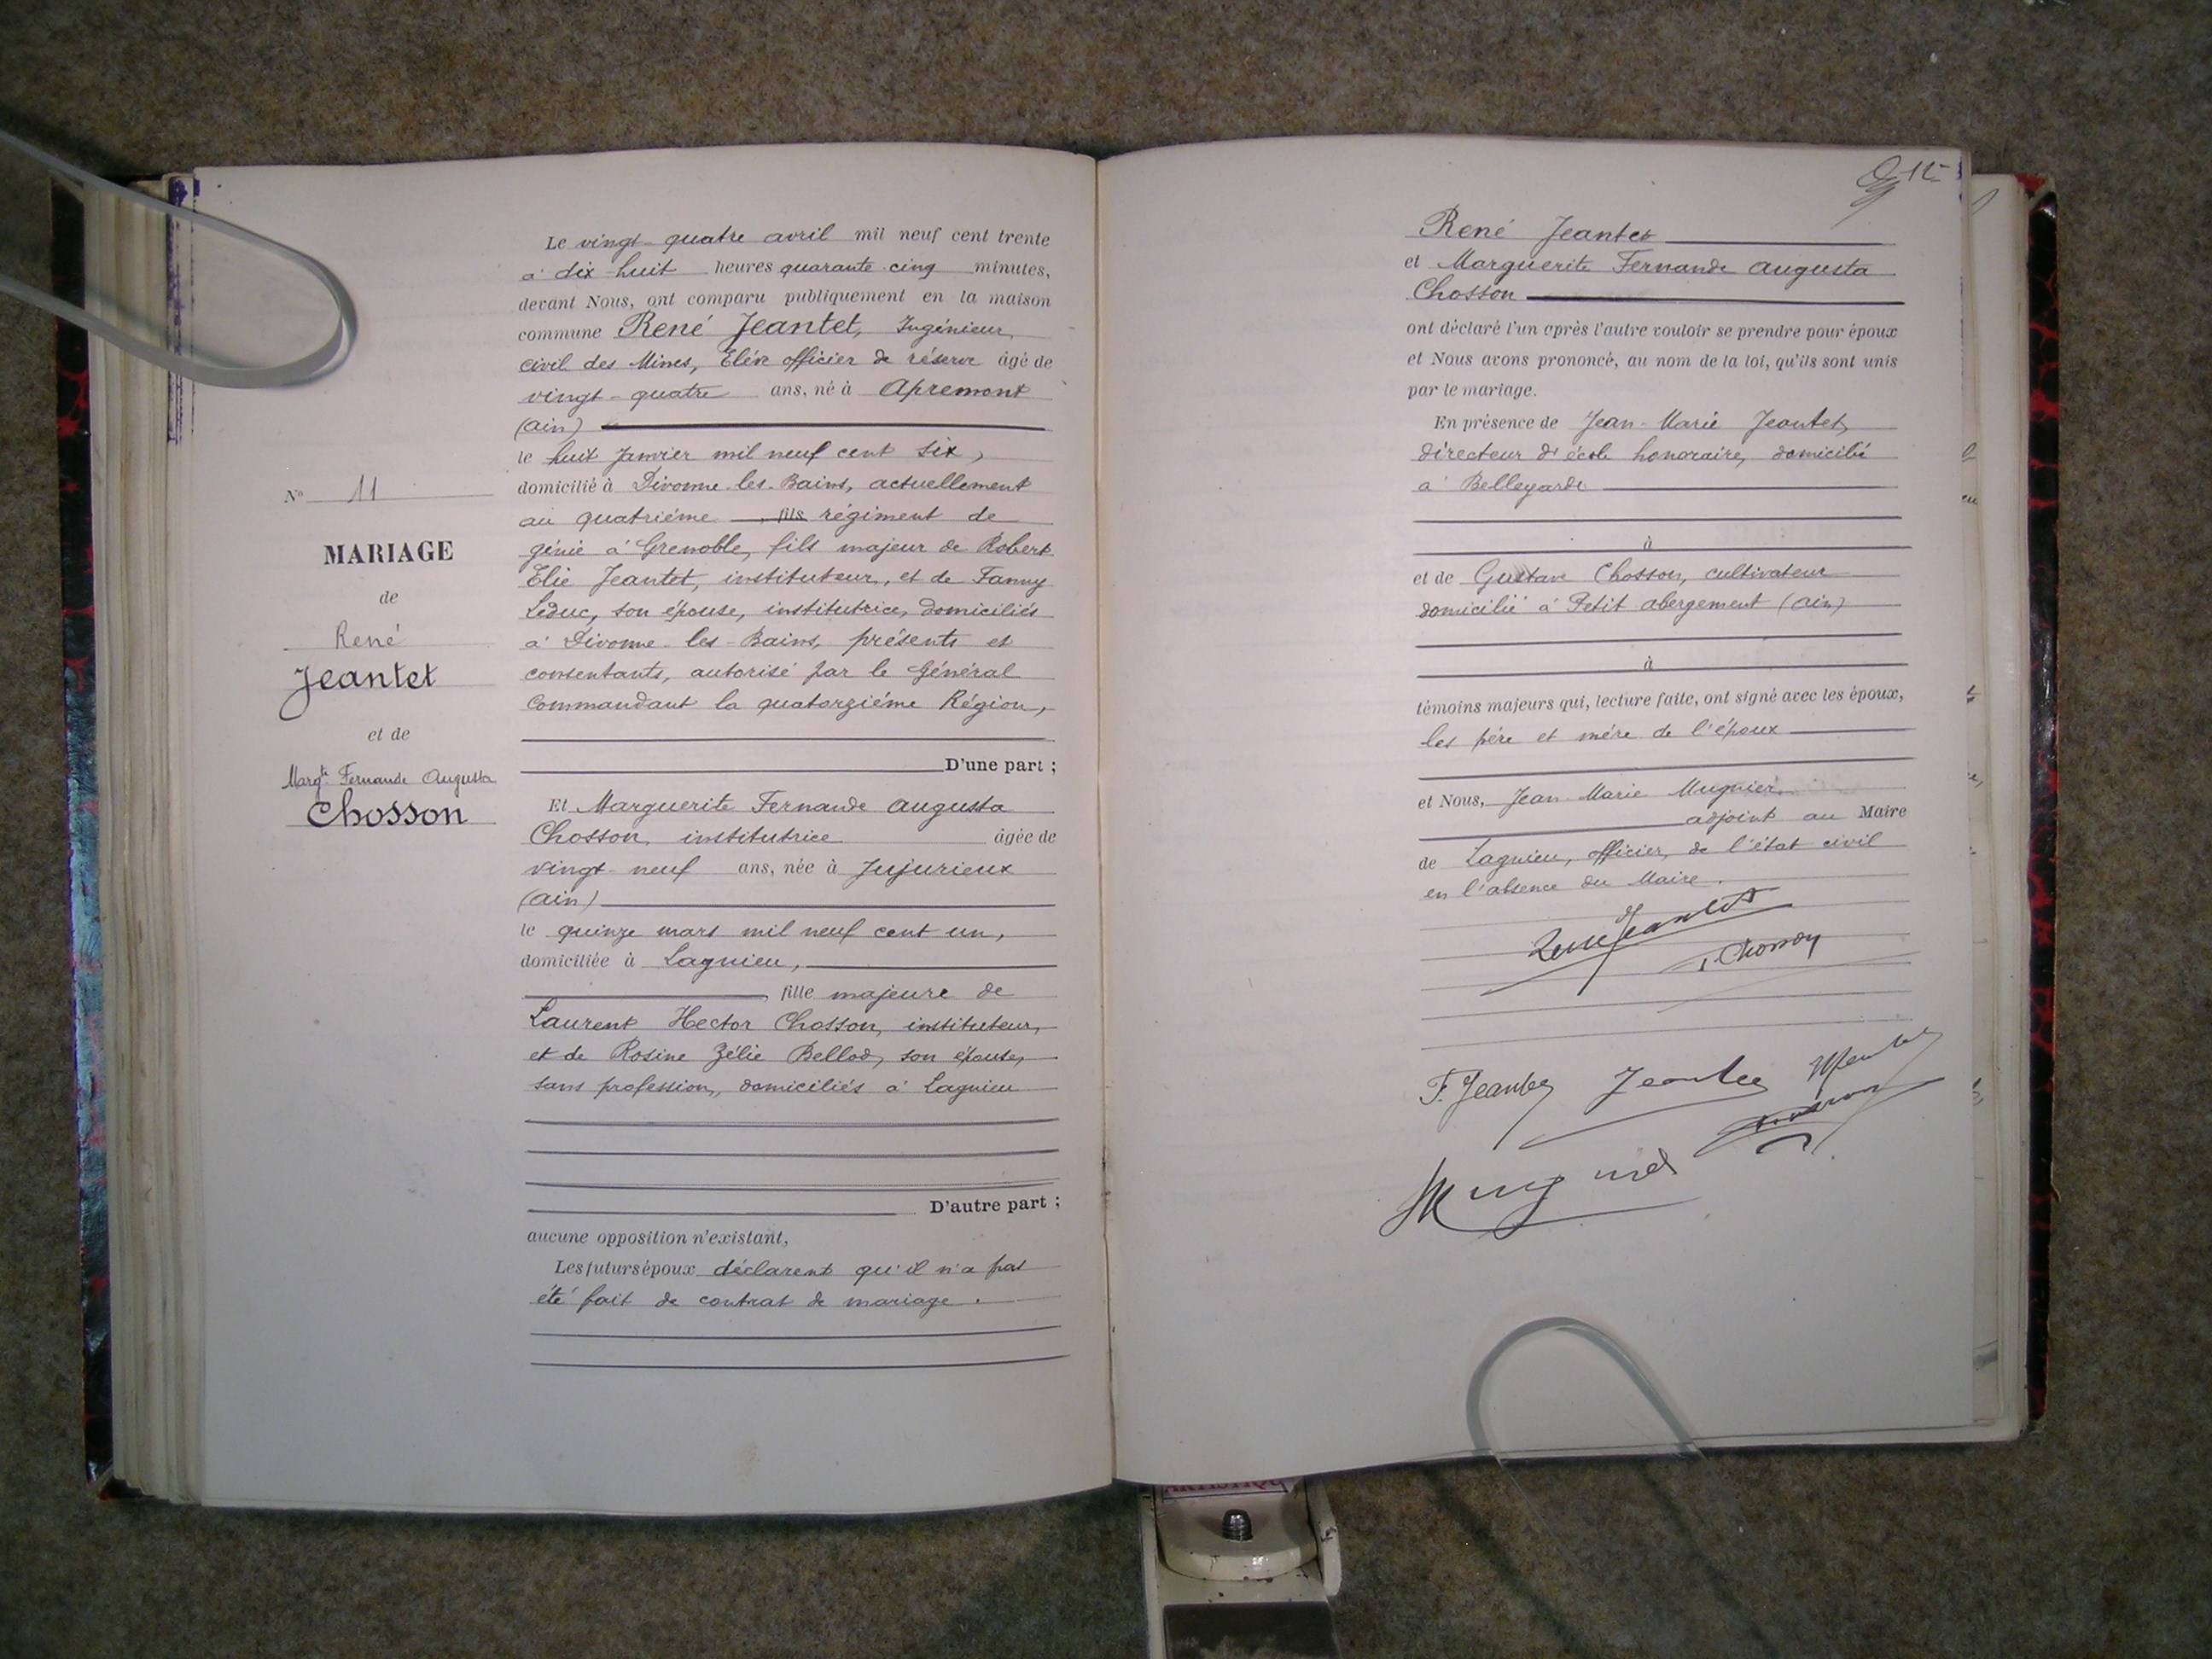 Le vingt-quatre avril mil neuf cent trente
à dix-huit heures quarante-cinq minutes,
devant Nous, ont comparu publiquement en la maison
commune René Jeantet, Ingénieur
civil des Mines, Elève officier de réserve âgé de
vingt-quatre ans, né à Apremont
(Ain)
le huit Janvier mil neuf cent six,
domicilié à Divonne-les-Bains, actuellement
au quatrième fils régiment de
génie à Grenoble, fils majeur de Robert
Elie Jeantet, instituteur, et de Fanny
Leduc, son épouse, institutrice, domiciliés
à Divonne-les-Bains, présents et
consentants, autorisé par le Général
Commandant la quatorzième Région,
D'une part ;
Et Marguerite Fernande Augusta
Chosson, institutrice âgée de
vingt-neuf ans, née à Jujurieux
(Ain)
le quinze mars mil neuf cent un,
domiciliée à Lagnieu,
fille majeure de
Laurent Hector Chosson, instituteur,
et de Rosine Zélie Bellod, son épouse,
sans profession, domiciliés à Lagnieu
D'autre part ;
aucune opposition n'existant,
Les futurs époux déclarent qu'il n'a pas
été fait de contrat de mariage.
N° 11
MARIAGE
de
René
Jeantet
et de
Margte Fernande Augusta
Chosson
12
René Jeantet
et Marguerite Fernande Augusta
Chosson
ont déclaré l'un après l'autre vouloir se prendre pour époux
et Nous avons prononcé, au nom de la loi, qu'ils sont unis
par le mariage.
En présence de Jean-Marie Jeantet,
directeur d'école honoraire, domicilié
à Bellegarde
à
et de Gustave Chosson, cultivateur
domicilié à Petit abergement (Ain)
à
témoins majeurs qui, lecture faite, ont signé avec les époux,
les père et mère de l'époux
et Nous, Jean Marie Mugnier,
adjoint au Maire
de Lagnieu, officier de l'état civil
en l'absence du Maire.
René Jeantet
Chosson
F. Jeantet Jeantet
Mugnier